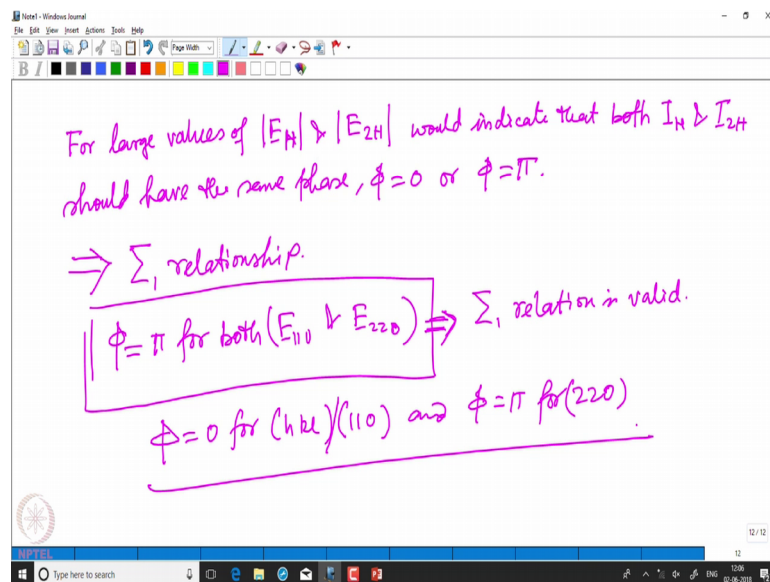 Note1 - Windows Journal
File Edit View Insert Actions Tools Help
Page Width
B I
For large values of |E_H| & |E_2H| would indicate that both I_H & I_2H
should have the same phase, φ=0 or φ=π.
⇒ Σ₁ relationship.
φ=π for both (E₁₁₀ & E₂₂₀) ⇒ Σ₁ relation is valid.
φ=0 for (hkl)/(110) and φ=π for (220)
NPTEL
12 / 12
12
Type here to search
ENG
12:06
02-06-2018